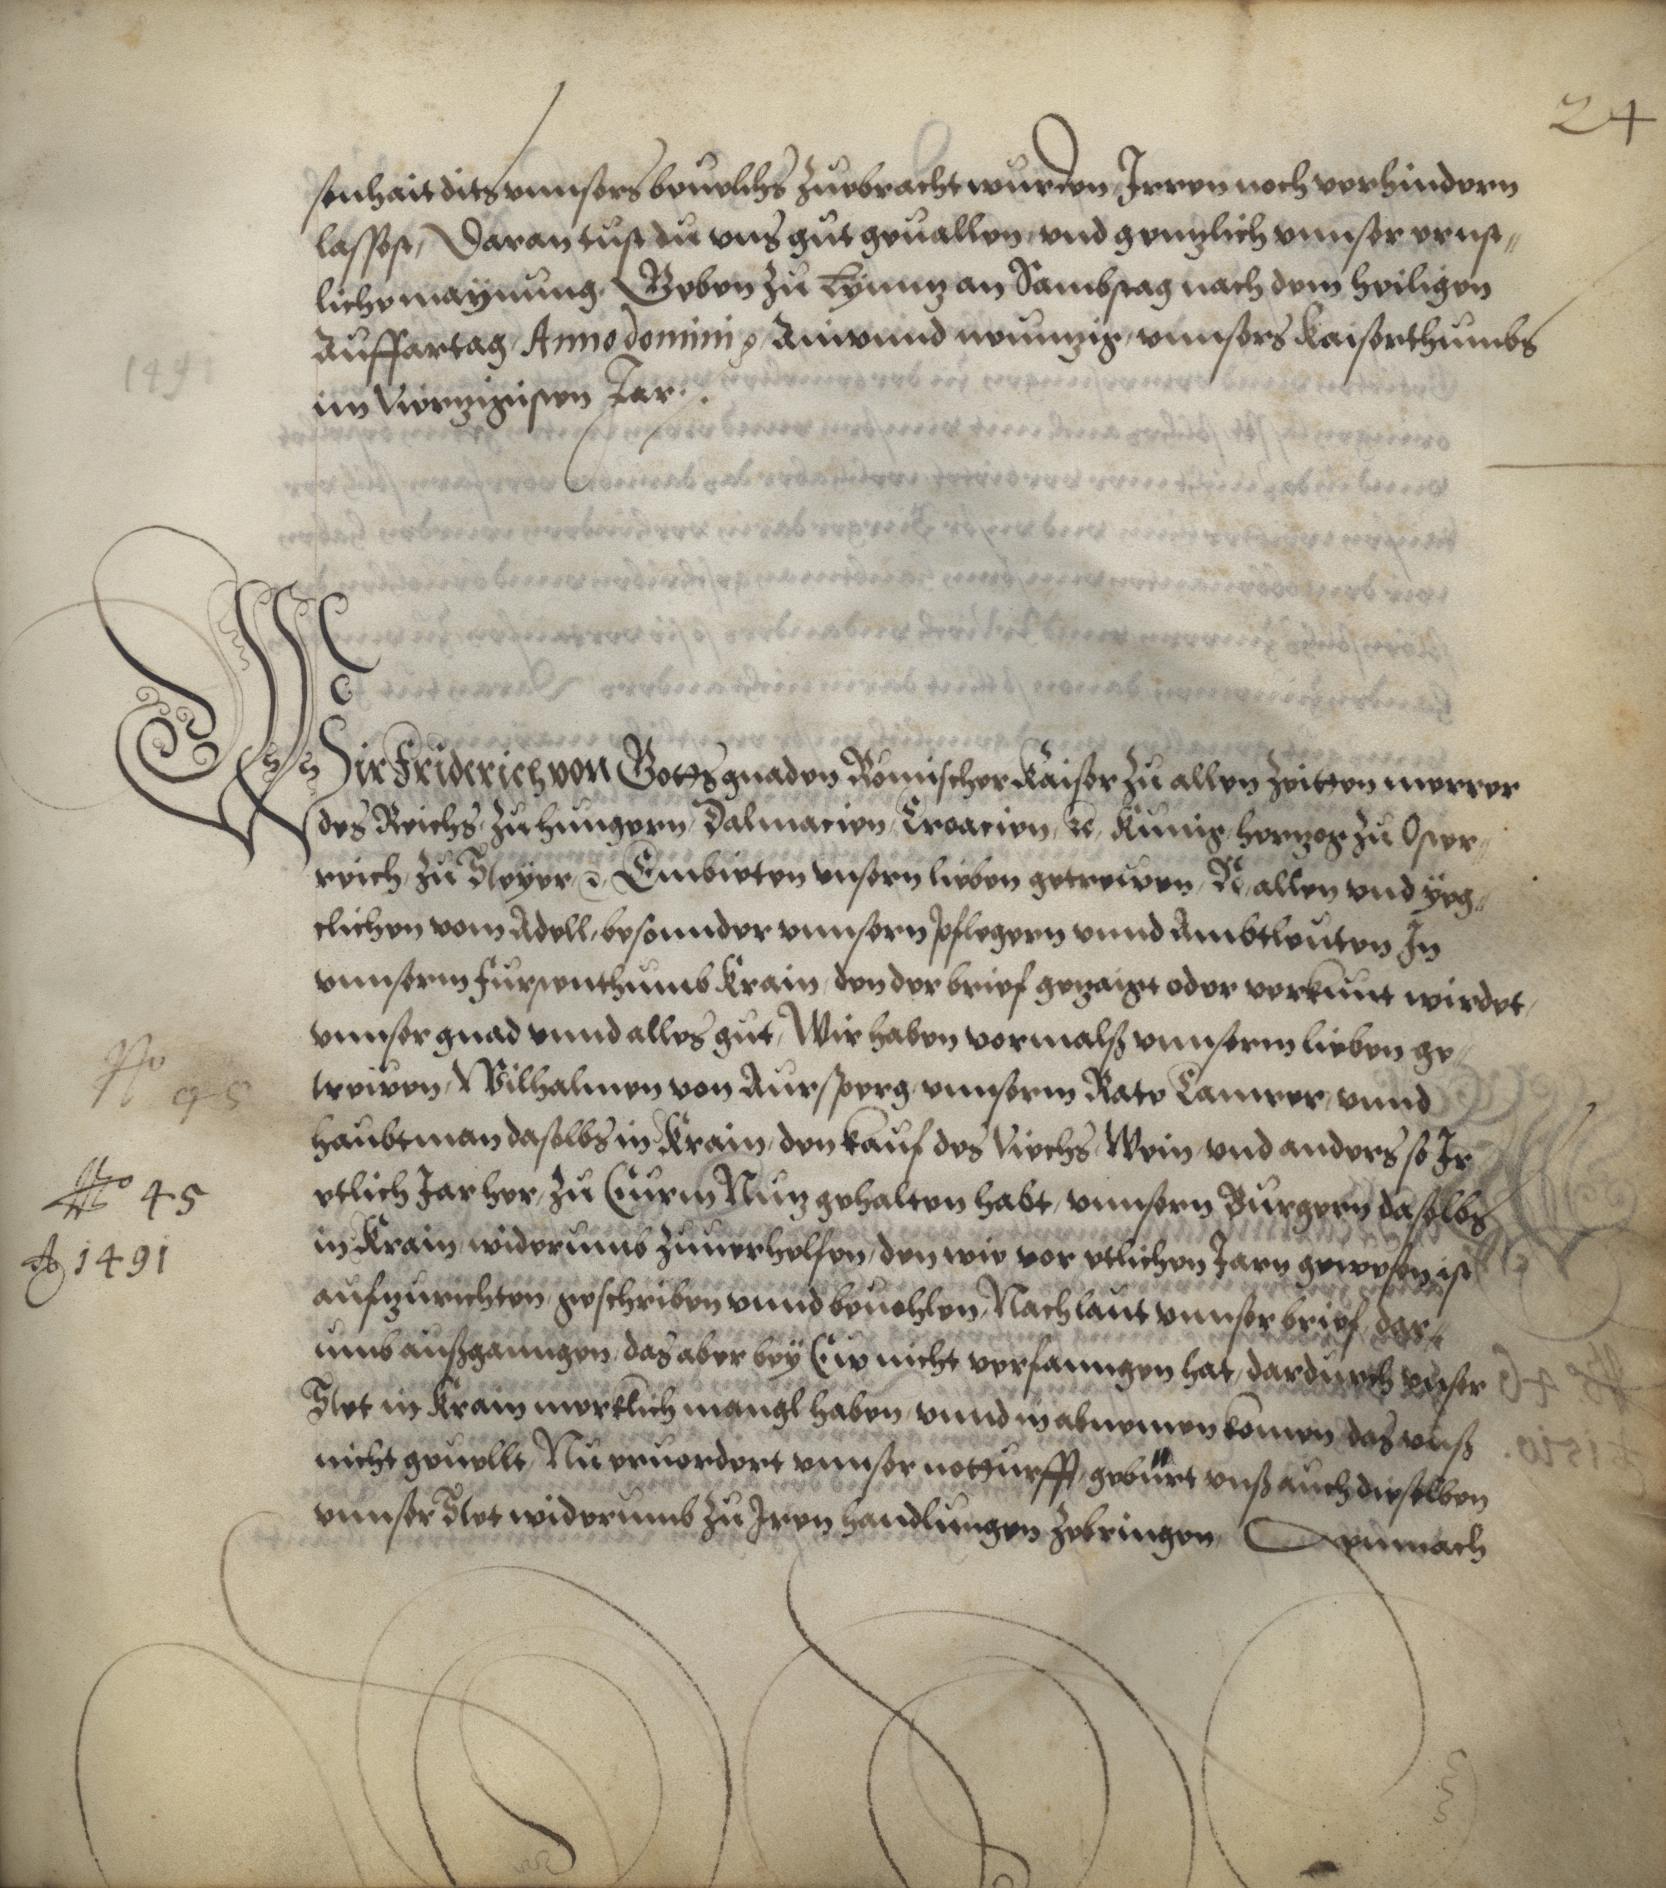 24
senhait dits vnnsers beuelchs zuebracht wurden, Irren noch verhindern
lassest, Daran tust du vns gut geuallen, vnd genntzlich vnnser ernst„
liche maynung, Geben zu Lynntz an Sambstag nach dem heiligen
Auffartag, Anno domini &c, Ainvnnd neunzig, vnnsers Kaiserthumbs
im Vierzigisten Jar.
1491
Wir Friderich von Gottsgnaden Römischer Kaiser zu allen Zeitten merrer
des Reichs, zu hungern, Dalmacien, Croacien, &c, Kunig, hertzog zu Oster„
reich, zu Steyer, &c, Embieten vnsern lieben getreuen, N, allen vnd yeg„
clichen vom Adell, besonnder vnnsern pflegern vnnd Ambtleuten In
vnnserm fürstenthumb Krain, den der brief gezaigt oder verkunt wirdet,
vnnser gnad vnnd alles gut, Wir haben vormalß vnnserm lieben ge„
treuen, Wilhalmen von Aursperg, vnnserm Rate Camrer, vnnd
haubtman daselbs in Krain, den kauf des Viechs, Wein, vnd anders so Ir
etlich Jar her, zu Eurm Nuz gehalten habt, vnnsern Burgern daselbs
in Krain, widerumb zuuerhelfen, den wie vor etlichen Jarn gewesen ist
aufzurichten, geschriben vnnd beuohlen, Nach laut vnnser brief dar„
umb außganngen, das aber bey Eur nicht verfanngen hat, dardurch vnser
Stet in Krain merklich mangl haben, vnnd in abnemen komen, das vnß
nicht geuellt, Nu eruordert vnnser notturfft, gebürt vnß auch dieselben
vnnser Stet widerumb zu Iren handlungen zebringen, Demnach
No 45
No 45
Ao 1491